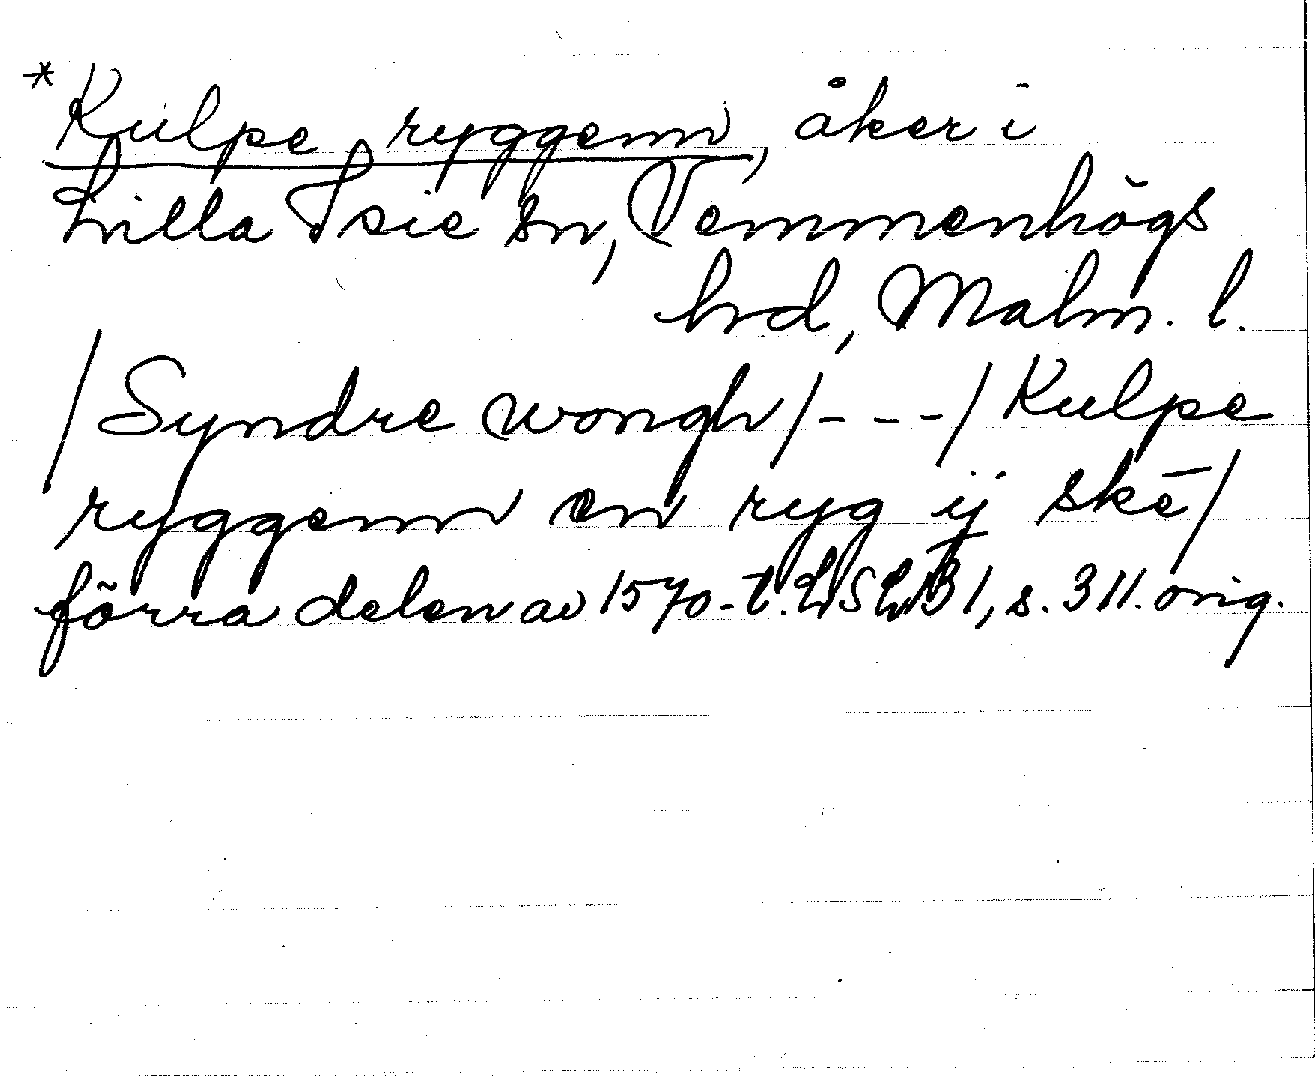 *Kulpe ryggenn, åker i
Lilla Isie sn, Vemmenhögs
hrd, Malm. l.
/Syndre wongh/---/Kulpe
ryggenn en ryg ij skē/
förra delen av 1570-t. LSLB1, s. 311. orig.